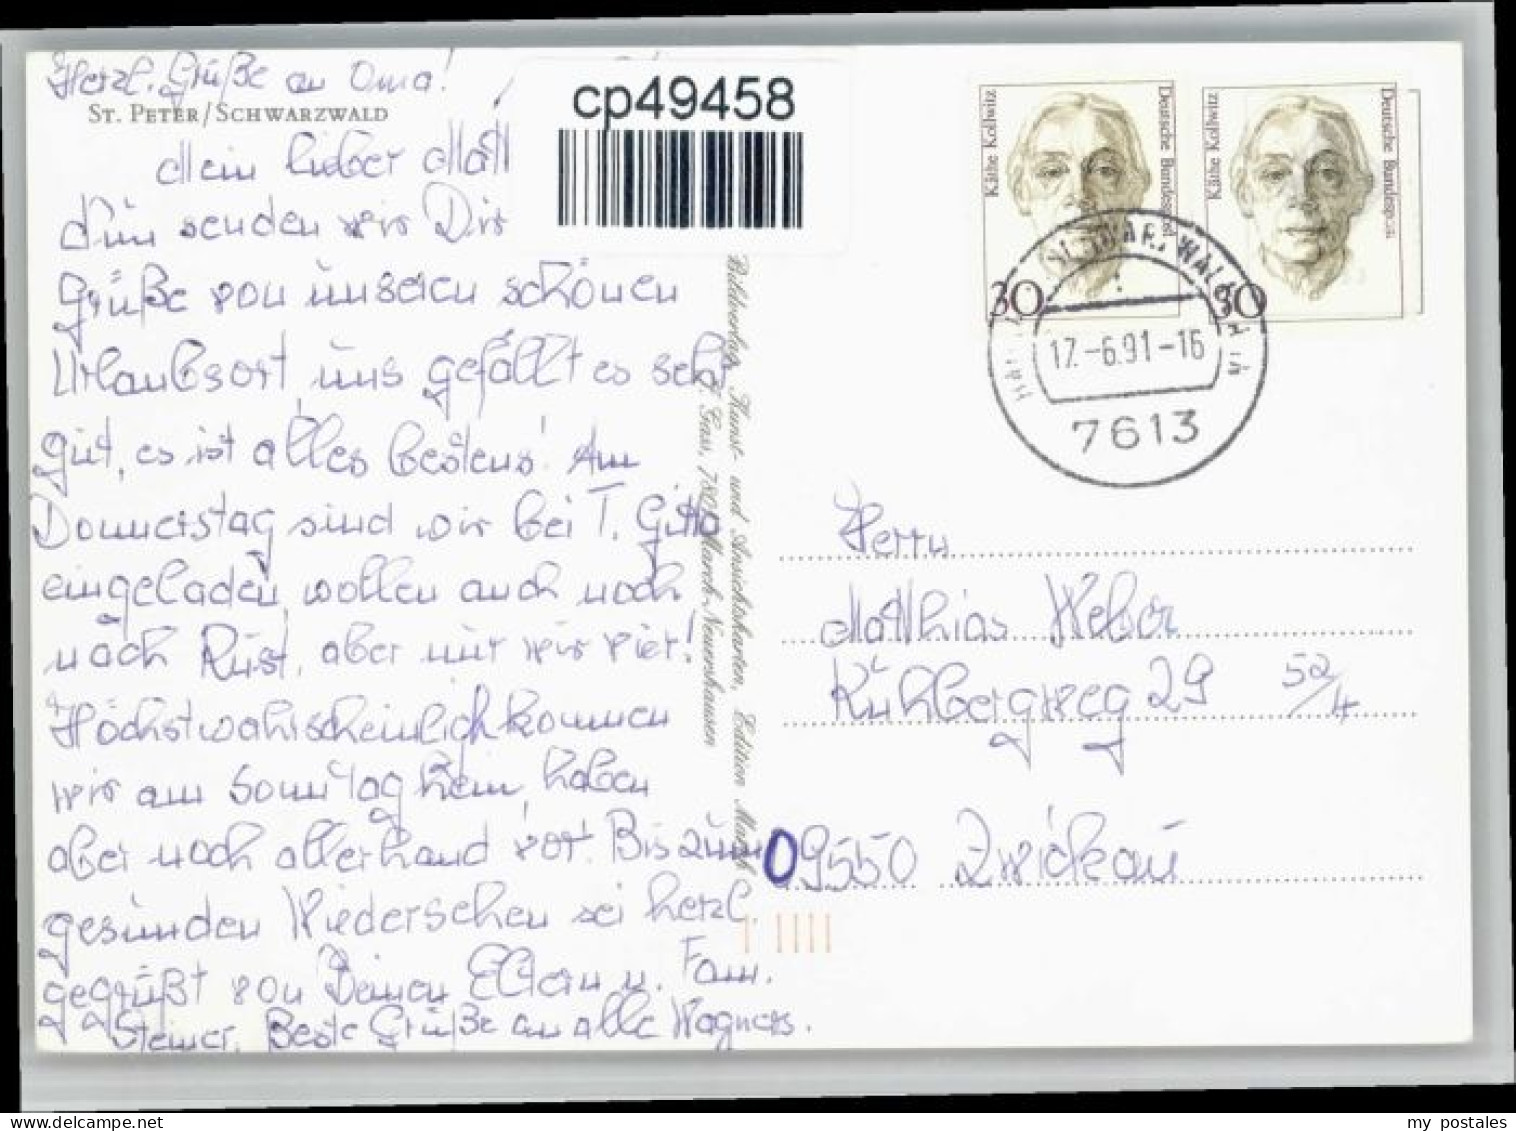 Herzl. Grüße an Oma!
ST. PETER/SCHWARZWALD
Mein lieber Matt
Nun senden wir Dir
Grüße von unseren schönen
Urlaubsort, uns gefällt es sehr
gut, es ist alles bestens! Am
Donnerstag sind wir bei T. Gitta
eingeladen, wollen auch noch
nach Rust, aber nur wir vier!
Höchstwahrscheinlich kommen
wir am Sonntag heim, haben
aber noch allerhand vor. Bis zum
gesunden Wiedersehen sei herzl.
gegrüßt von Deinen Eltern u. Fam.
Steiner. Beste Grüße an alle Wagners.
cp49458
Bildverlag, Kunst- und Ansichtskarten, Edition March
Gass, 7801 March-Neuershausen
Käthe Kollwitz
Deutsche Bundespost
30
Käthe Kollwitz
Deutsche Bundespost
30
17.-6.91-16
7613
Herrn
Matthias Weber
Kühbergweg 29 52/4
09550 Zwickau
my postales